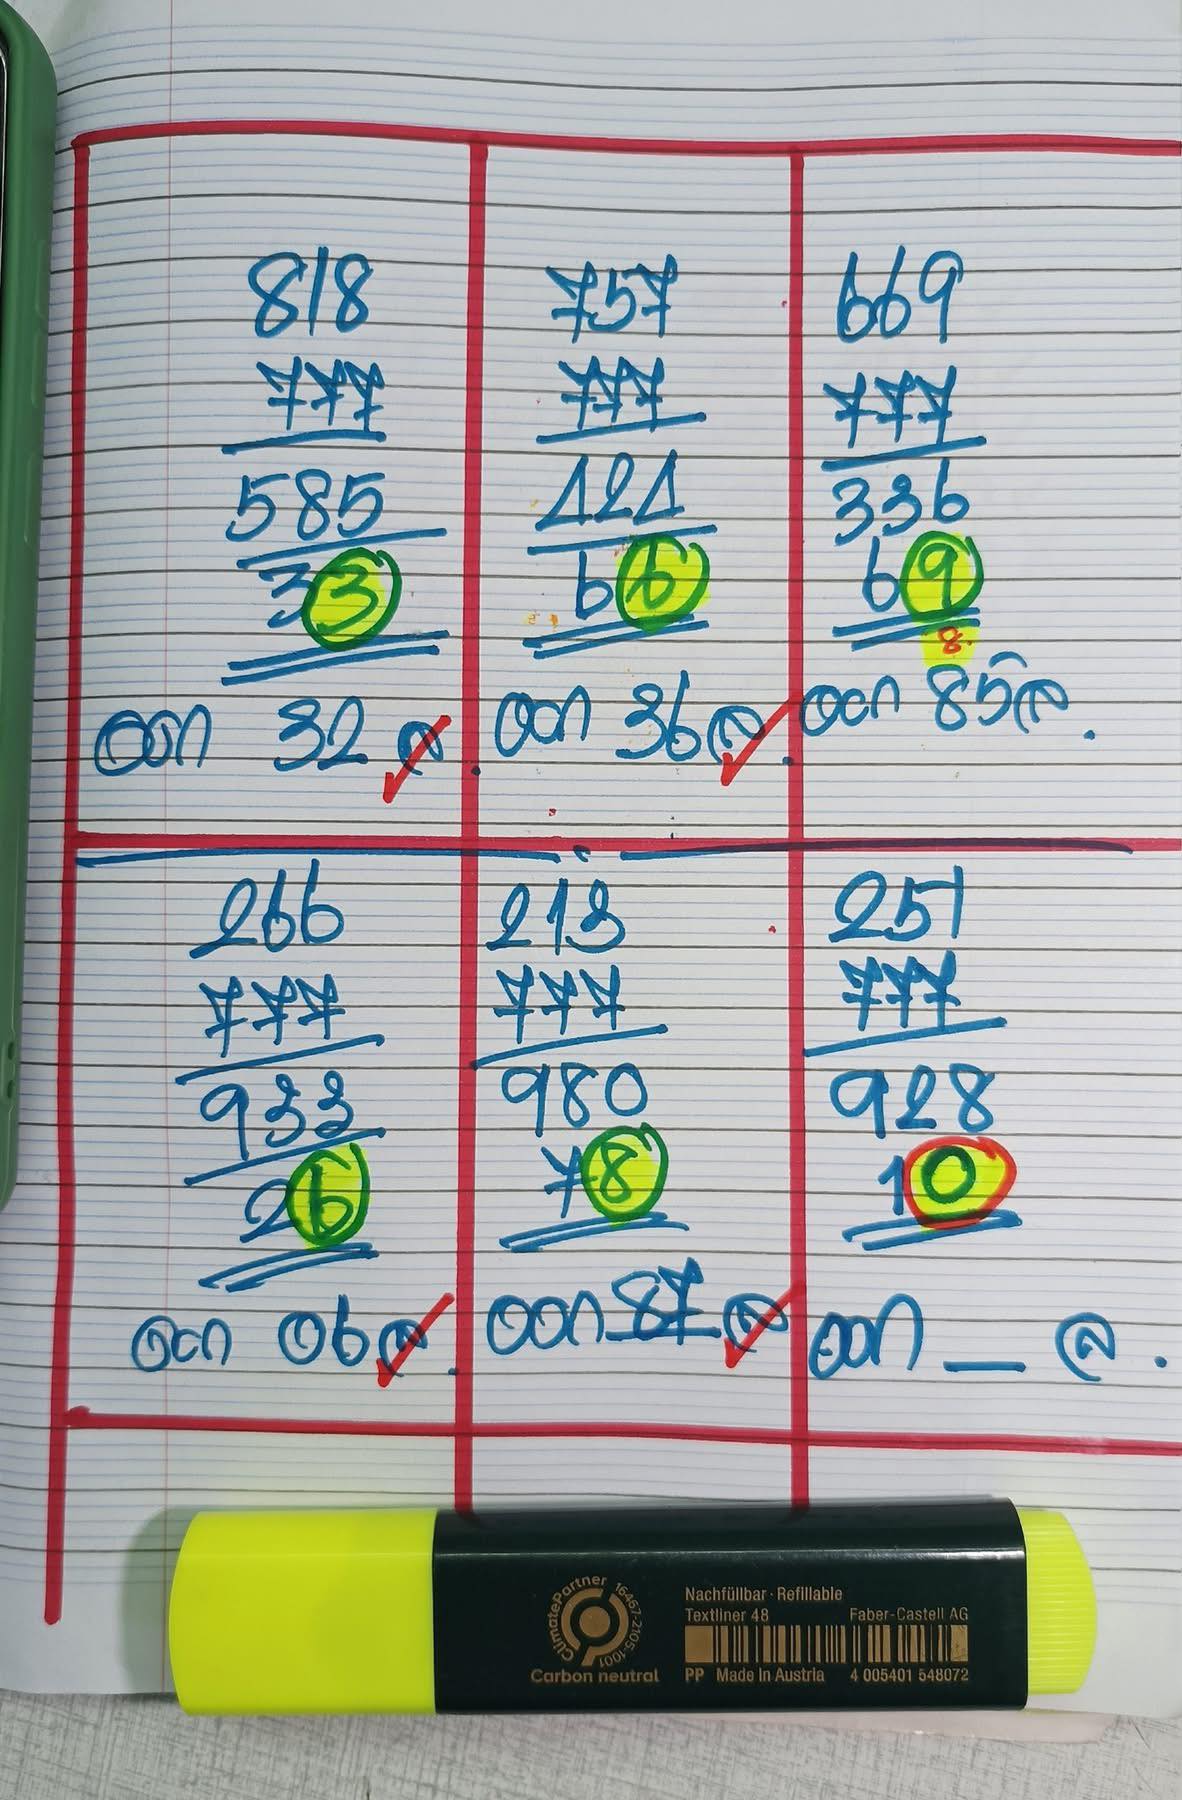 818
777
585
33
ออก 32 ล.
757
777
424
66
ออก 36 ล.
669
777
336
69
8.
ออก 85 ล.
266
777
933
26
ออก 06 ล.
213
777
980
78
ออก 87 ล
251
777
928
10
ออก _ ล.
ClimatePartner 16467-2105-1001
Carbon neutral
Nachfüllbar · Refillable
Textliner 48 Faber-Castell AG
PP Made In Austria 4 005401 548072